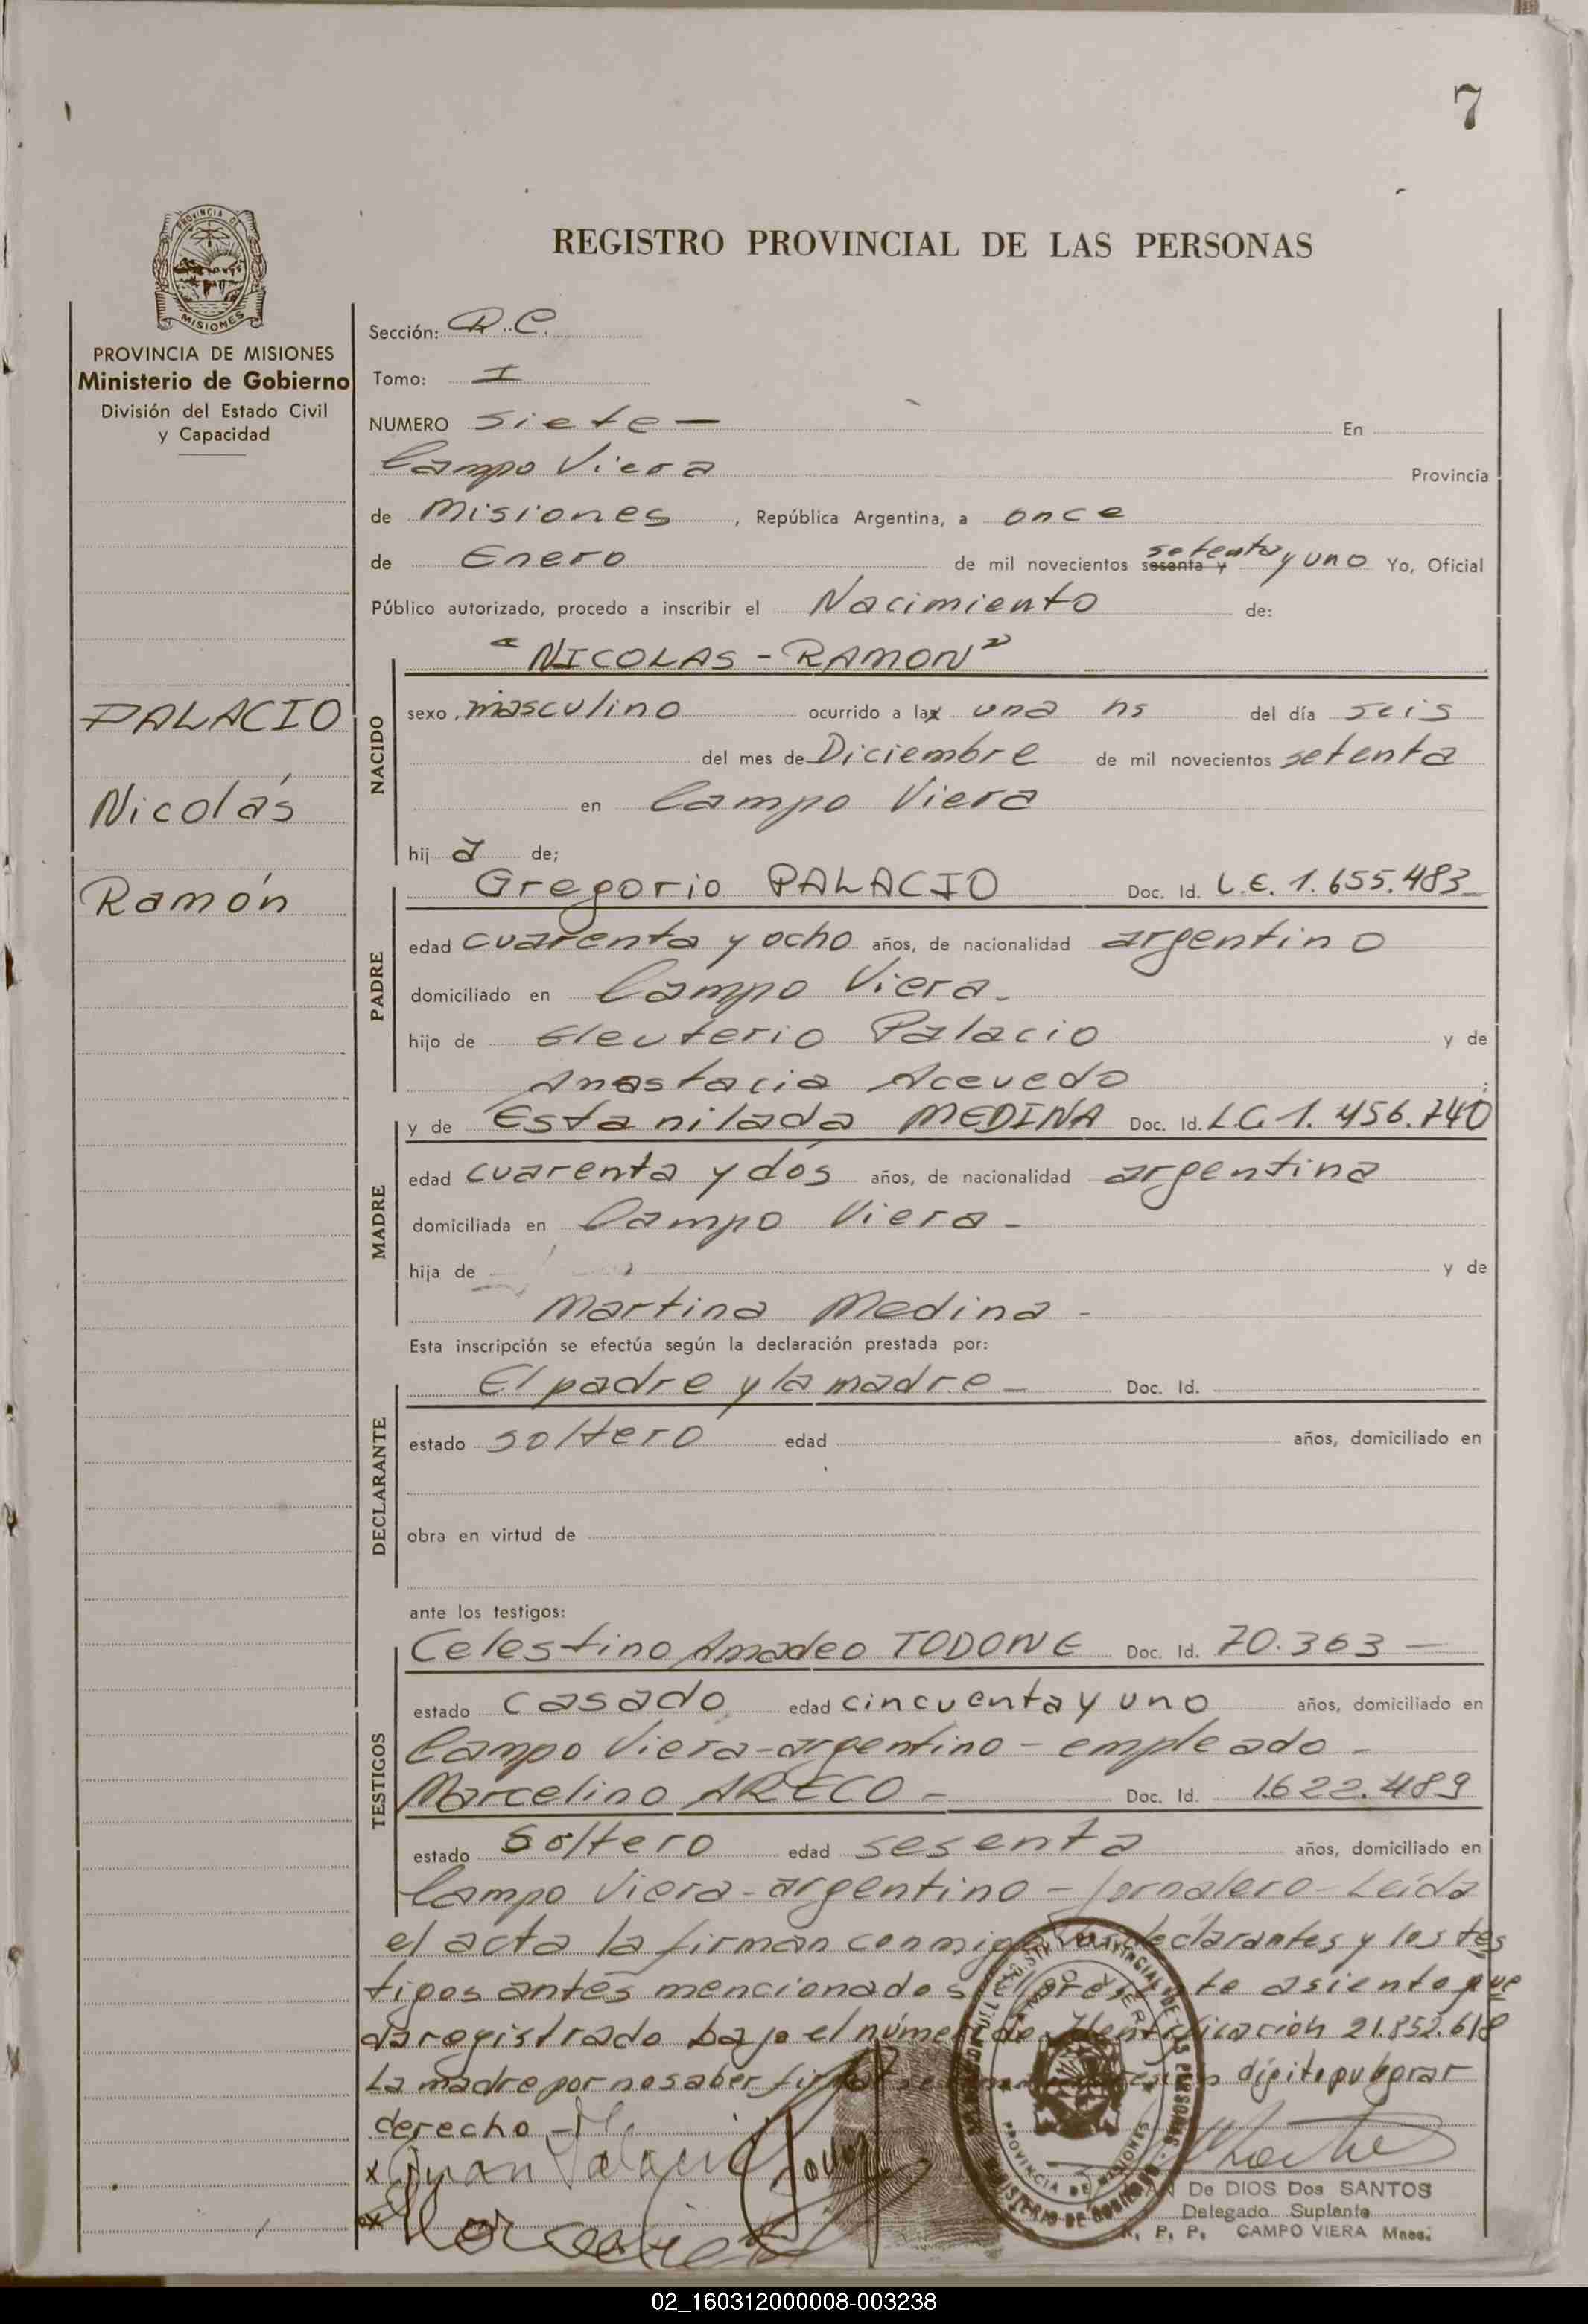 7
PROVINCIA DE
MISIONES
REGISTRO PROVINCIAL DE LAS PERSONAS
PROVINCIA DE MISIONES
Ministerio de Gobierno
División del Estado Civil
y Capacidad
PALACIO
Nicolás
Ramón
Sección: R.C.
Tomo: I
NUMERO siete — En
Campo Viera Provincia
de Misiones, República Argentina, a once
de Enero de mil novecientos sesenta y setenta y uno Yo, Oficial
Público autorizado, procedo a inscribir el Nacimiento de:
"NICOLAS - RAMON"
NACIDO
sexo masculino ocurrido a lax una hs del día seis
del mes de Diciembre de mil novecientos setenta
en Campo Viera
hij o de;
PADRE
Gregorio PALACIO Doc. Id. L.E. 1.655.483
edad cuarenta y ocho años, de nacionalidad argentino
domiciliado en Campo Viera.
hijo de Eleuterio Palacio y de
Anastacia Acevedo ;
MADRE
y de Estanilada MEDINA Doc. Id. L.C. 1.456.740
edad cuarenta y dos años, de nacionalidad argentina
domiciliada en Campo Viera -
hija de y de
Martina Medina -
Esta inscripción se efectúa según la declaración prestada por:
DECLARANTE
El padre y la madre - Doc. Id.
estado soltero edad años, domiciliado en
obra en virtud de
ante los testigos:
TESTIGOS
Celestino Amadeo TODONE Doc. Id. 70.363 —
estado casado edad cincuenta y uno años, domiciliado en
Campo Viera - argentino - empleado -
Marcelino ARECO - Doc. Id. 1.622.489
estado Soltero edad sesenta años, domiciliado en
Campo Viera - argentino - jornalero - Leída
el acta la firman conmigo los declarantes y los tes
tigos antes mencionados el presente asiento que
da registrado bajo el número de Identificación 21.852.618
La madre por no saber firmar dígito pulgar
derecho -
PROVINCIA DE MISIONES
De DIOS Dos SANTOS
Delegado Suplente
R. P. P. CAMPO VIERA Mnes.
02_160312000008-003238